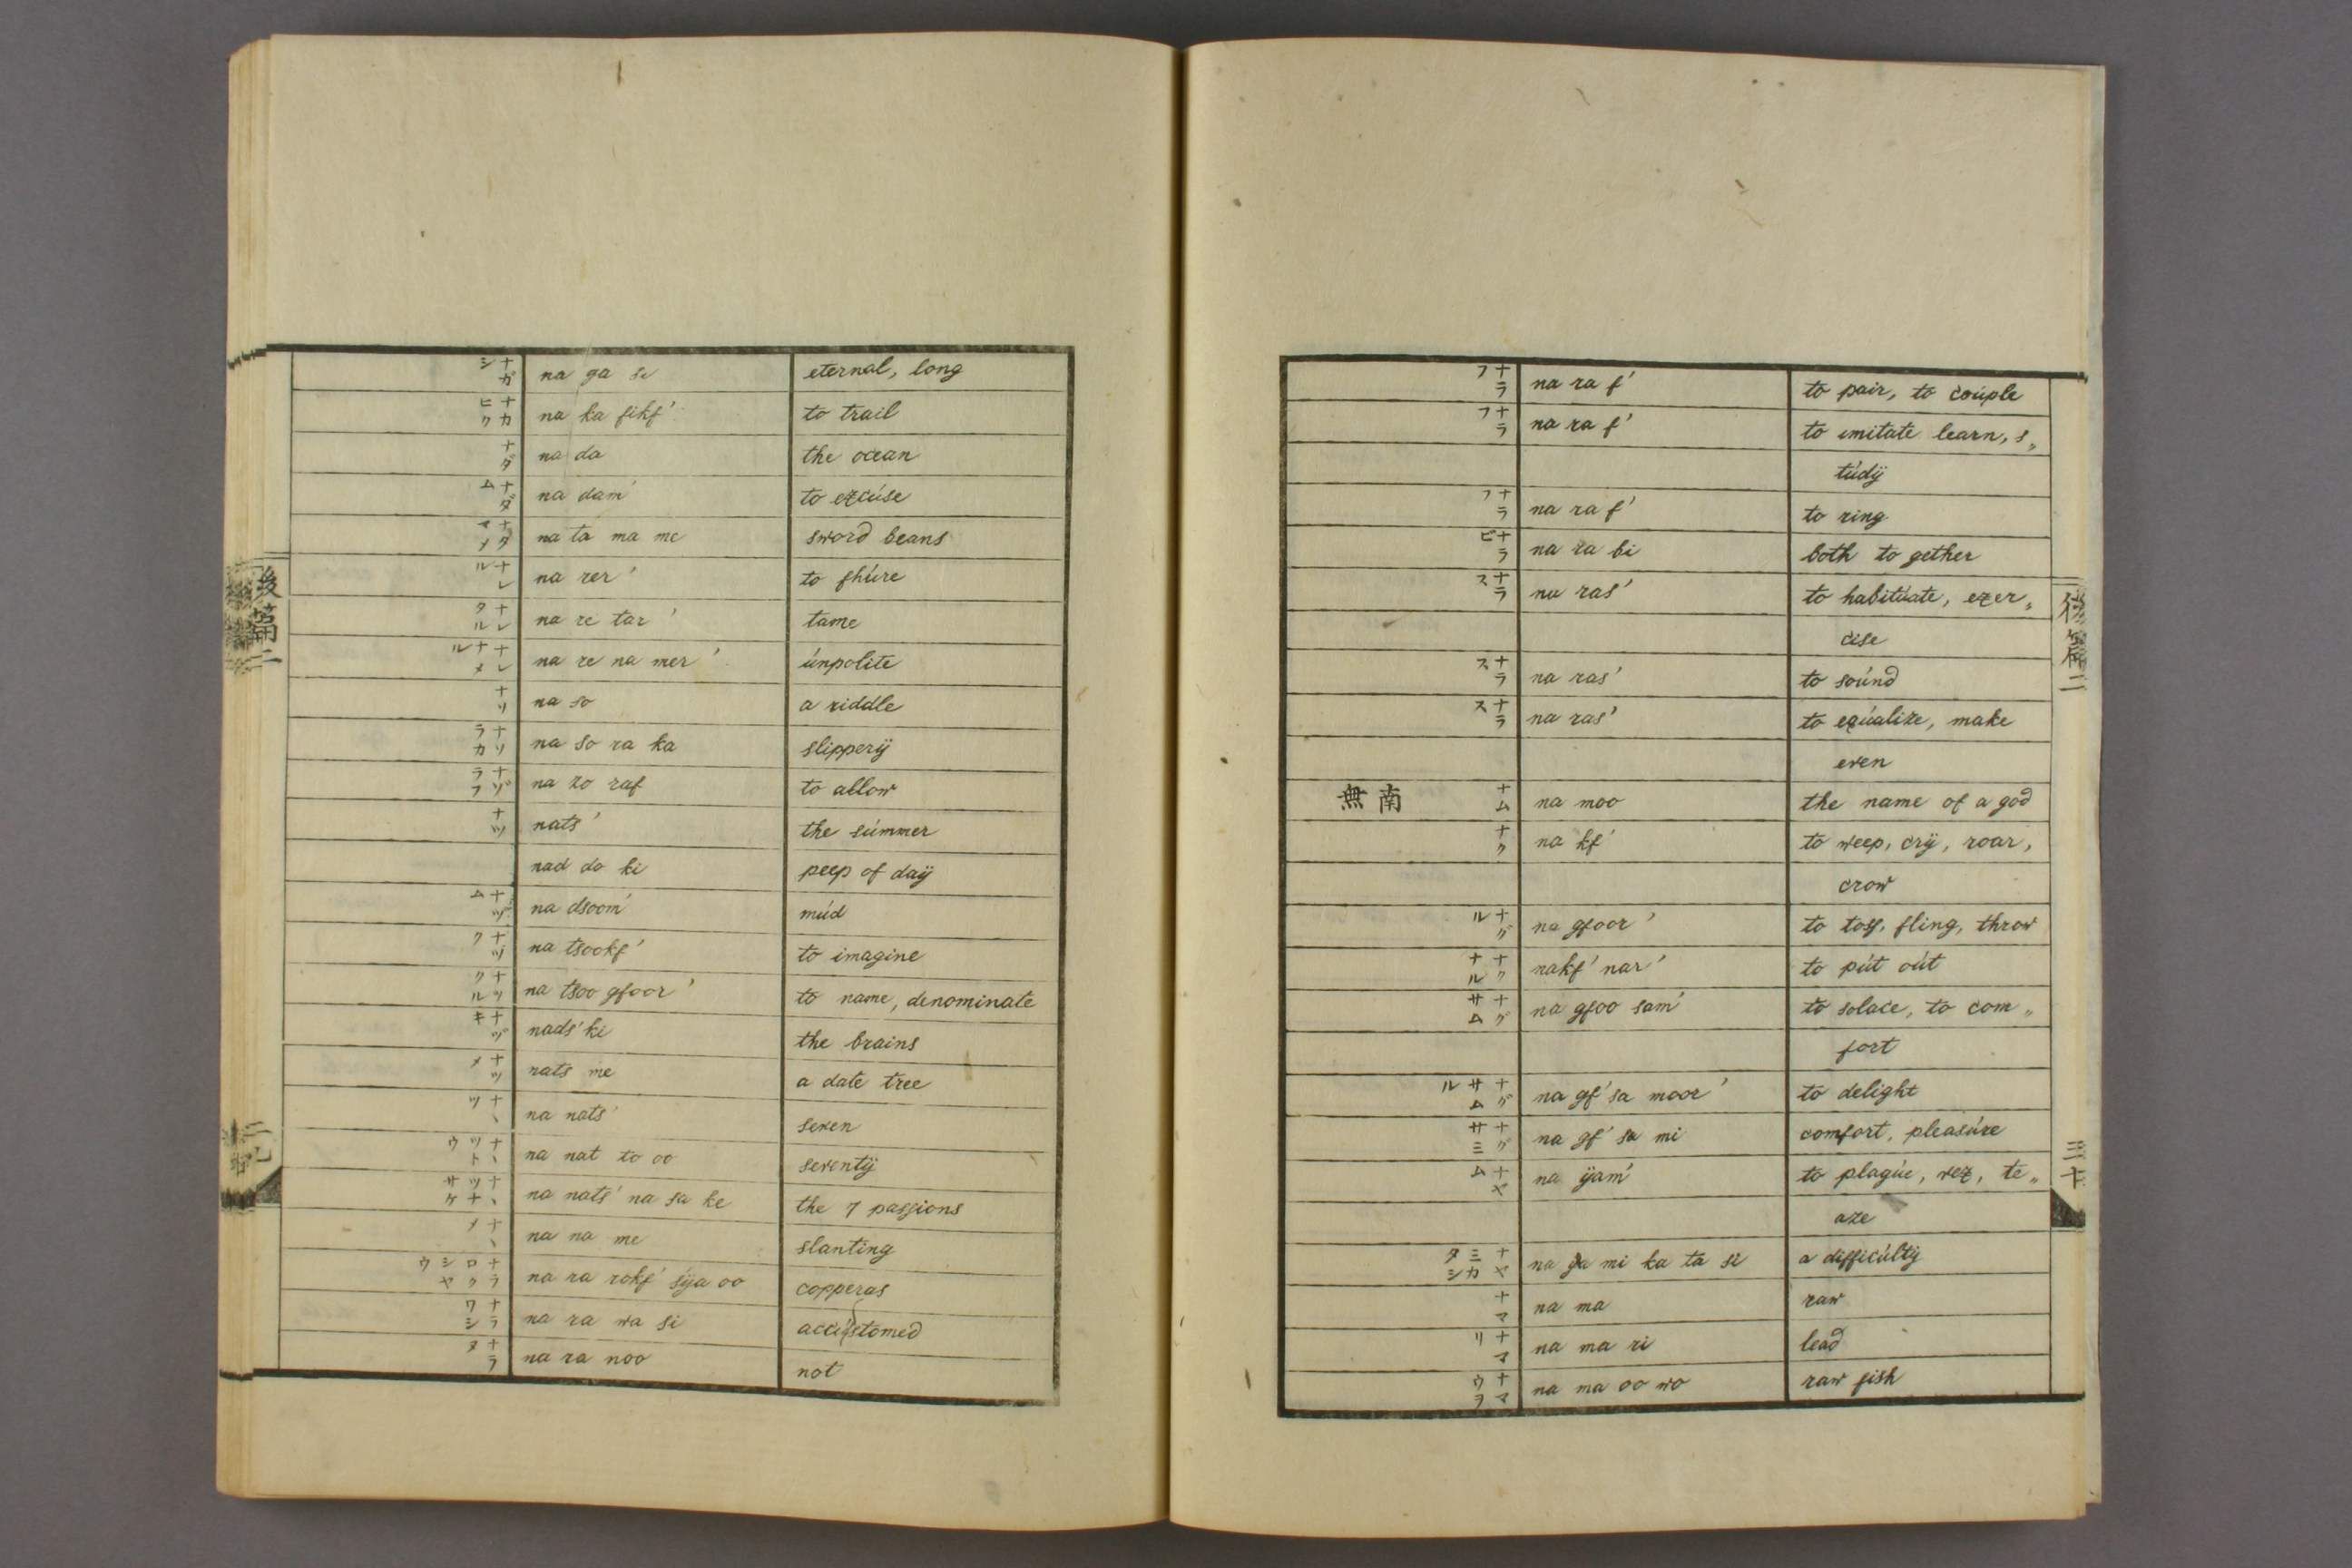 ナガシ na ga si eternal, long
ナカヒク na ka fikf' to trail
ナダ na da the ocean
ナダム na dam' to ezcúse
ナタマメ na ta ma me sword beans
ナレル na rer' to fhúre
ナレタル na re tar' tame
ナレナメル na re na mer' únpolite
ナソ na so a riddle
ナソラカ na so ra ka slipperÿ
ナゾラフ na zo raf to allow
ナツ nats' the súmmer
nad do ki peep of daÿ
ナヅム na dsoom' múd
ナヅク na tsookf' to imagine
ナツクル na tsoo gfoor' to name, denominate
ナヅキ nads' ki the brains
ナツメ nats me a date tree
ナヽツ na nats' seven
ナヽツトウ na nat to oo seventÿ
ナヽツナサケ na nats' na sa ke the 7 pasſions
ナヽメ na na me slanting
ナラロクシヤウ na ra rokf' sÿa oo copperas
ナラワシ na ra wa si accústomed
ナラヌ na ra noo not
後篇二
ナラフ na ra f' to pair, to coúple
ナラフ na ra f' to imitate learn, s„
túdÿ
ナラフ na ra f' to ring
ナラビ na ra bi both to gether
ナラス na ras' to habitúate, ezer„
cise
ナラス na ras' to soúnd
ナラス na ras' to eqúalize, make
even
南無 ナム na moo the name of a god
ナク na kf' to weep, crÿ, roar,
crow
ナグル na gfoor' to toſs, fling, throw
ナクナル nakf' nar' to pút oút
ナグサム na gfoo sam' to solace, to com„
fort
ナグサムル na gf' sa moor' to delight
ナグサミ na gf' sa mi comfort, pleasúre
ナヤム na ÿam' to plagúe, vez, te„
aze
ナヤミカタシ na ya mi ka ta si a difficúltÿ
ナマ na ma raw
ナマリ na ma ri lead
ナマウヲ na ma oo wo raw fish
後篇二
三十